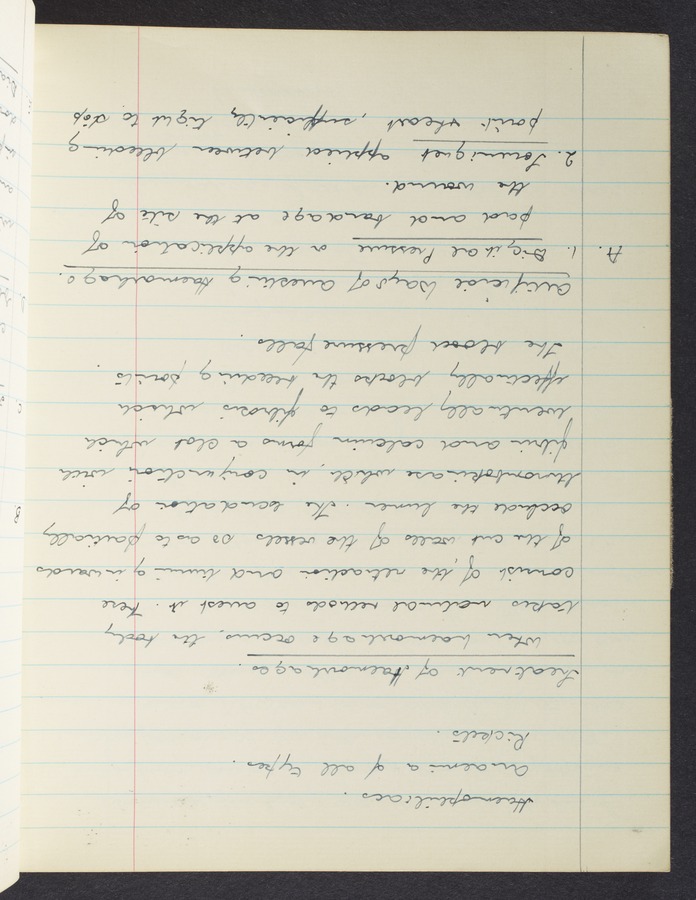 Haemophiliacs.
Anaemia of all types.
Rickets.
Treatment of Haemorrhages.
When haemorrhage occurs, the body
takes natural methods to arrest it. These
consist of, the retraction and turning inwards
of the cut walls of the vessels so as to partially
occlude the lumen. The exudation of
thrombokinase which, in conjunction with
fibrin and calcium forms a clot which
eventually leads to fibrosis which
effectually blocks the bleeding points.
The blood pressure falls.
Artificial Ways of arresting Haemorrhage.
A. 1. Digital Pressure or the application of
pad and bandage at the site of
the wound.
2. Tourniquet applied between bleeding
point & heart, sufficiently tight to stop